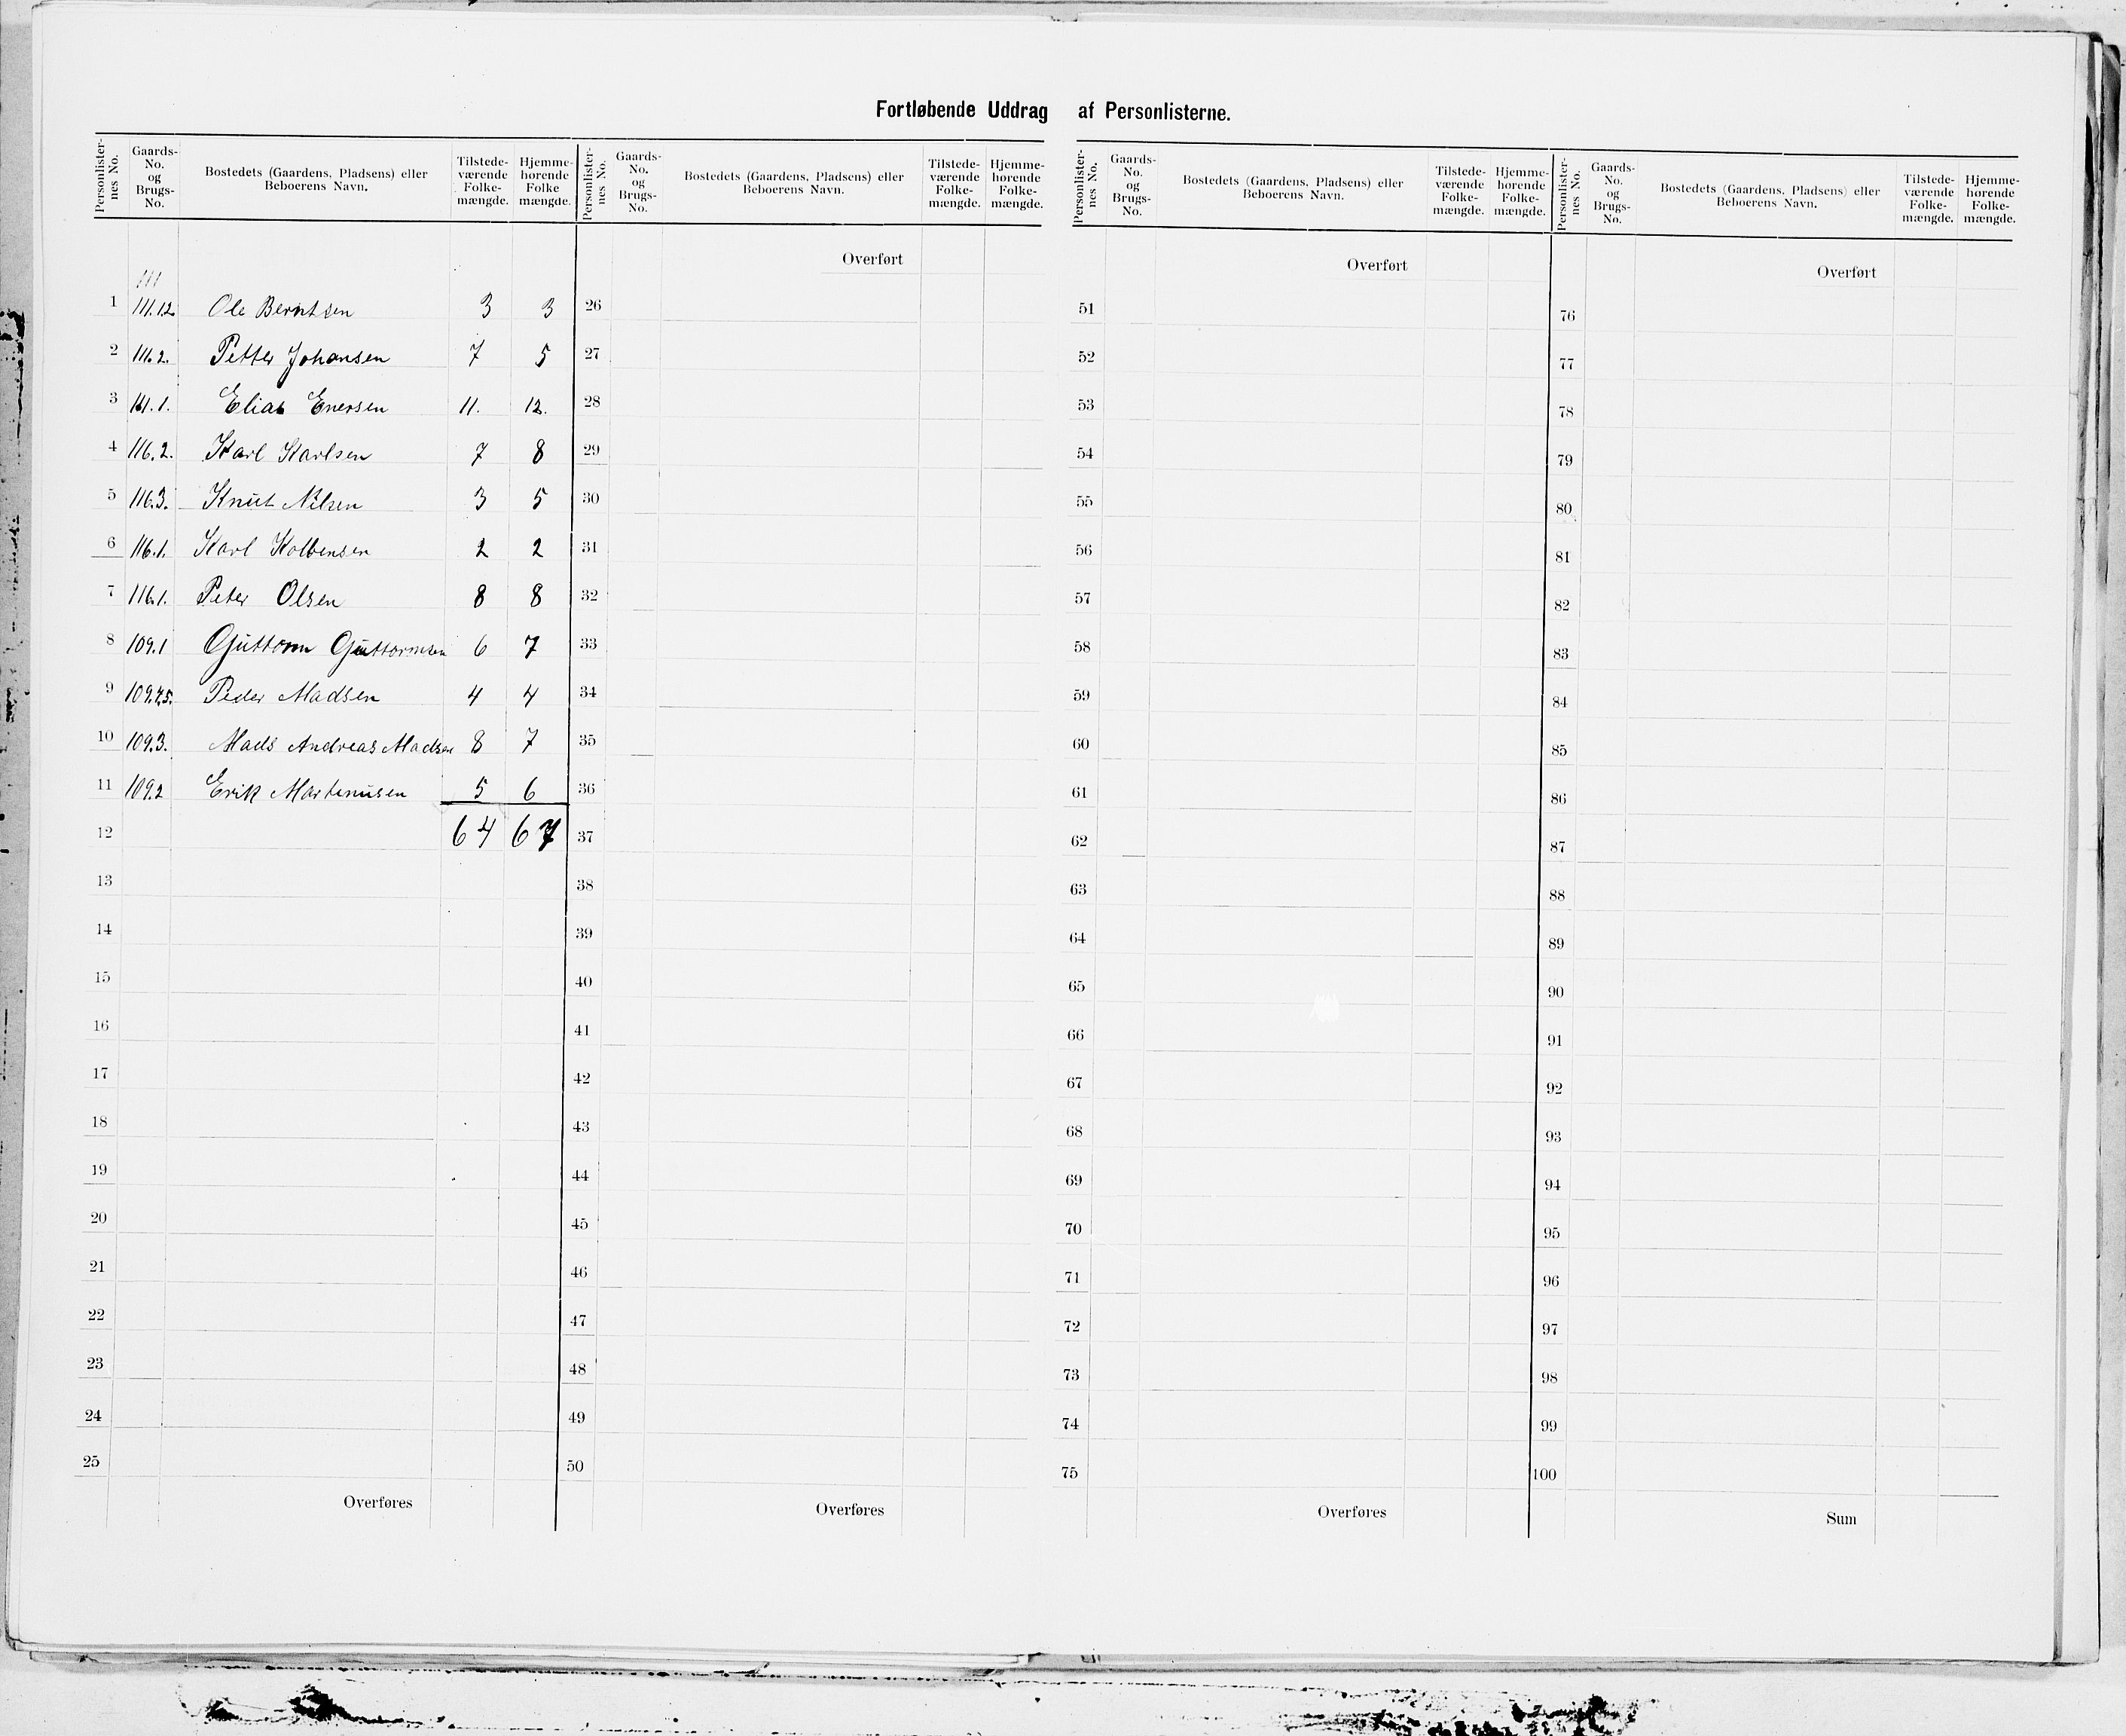 Fortløbende Uddrag af Personlisterne.
Personlisternes No. Gaards-No. og Brugs-No. Bostedets (Gaardens, Pladsens) eller Beboerens Navn. Tilstedeværende Folkemængde. Hjemmehørende Folkemængde.
Personlisternes No. Gaards-No. og Brugs-No. Bostedets (Gaardens, Pladsens) eller Beboerens Navn. Tilstedeværende Folkemængde. Hjemmehørende Folkemængde.
Personlisternes No. Gaards-No. og Brugs-No. Bostedets (Gaardens, Pladsens) eller Beboerens Navn. Tilstedeværende Folkemængde. Hjemmehørende Folkemængde.
Personlisternes No. Gaards-No. og Brugs-No. Bostedets (Gaardens, Pladsens) eller Beboerens Navn. Tilstedeværende Folkemængde. Hjemmehørende Folkemængde.
111
1 111.12 Ole Berntsen 3 3
2 111.2. Petter Johansen 7 5
3 111.1. Elias Enersen 11. 12.
4 116.2. Karl Karlsen 7 8
5 116.3. Knut Nilsen 3 5
6 116.1. Karl Kolbensen 2 2
7 116.1. Peter Olsen 8 8
8 109.1 Guttorm Guttormsen 6 7
9 109.4,5. Peder Madsen 4 4
10 109.3. Mads Andreas Madsen 8 7
11 109.2 Erik Martinusen 5 6
12 64 67
13
14
15
16
17
18
19
20
21
22
23
24
25
Overføres
Overført
26
27
28
29
30
31
32
33
34
35
36
37
38
39
40
41
42
43
44
45
46
47
48
49
50
Overføres
Overført
51
52
53
54
55
56
57
58
59
60
61
62
63
64
65
66
67
68
69
70
71
72
73
74
75
Overføres
Overført
76
77
78
79
80
81
82
83
84
85
86
87
88
89
90
91
92
93
94
95
96
97
98
99
100
Sum